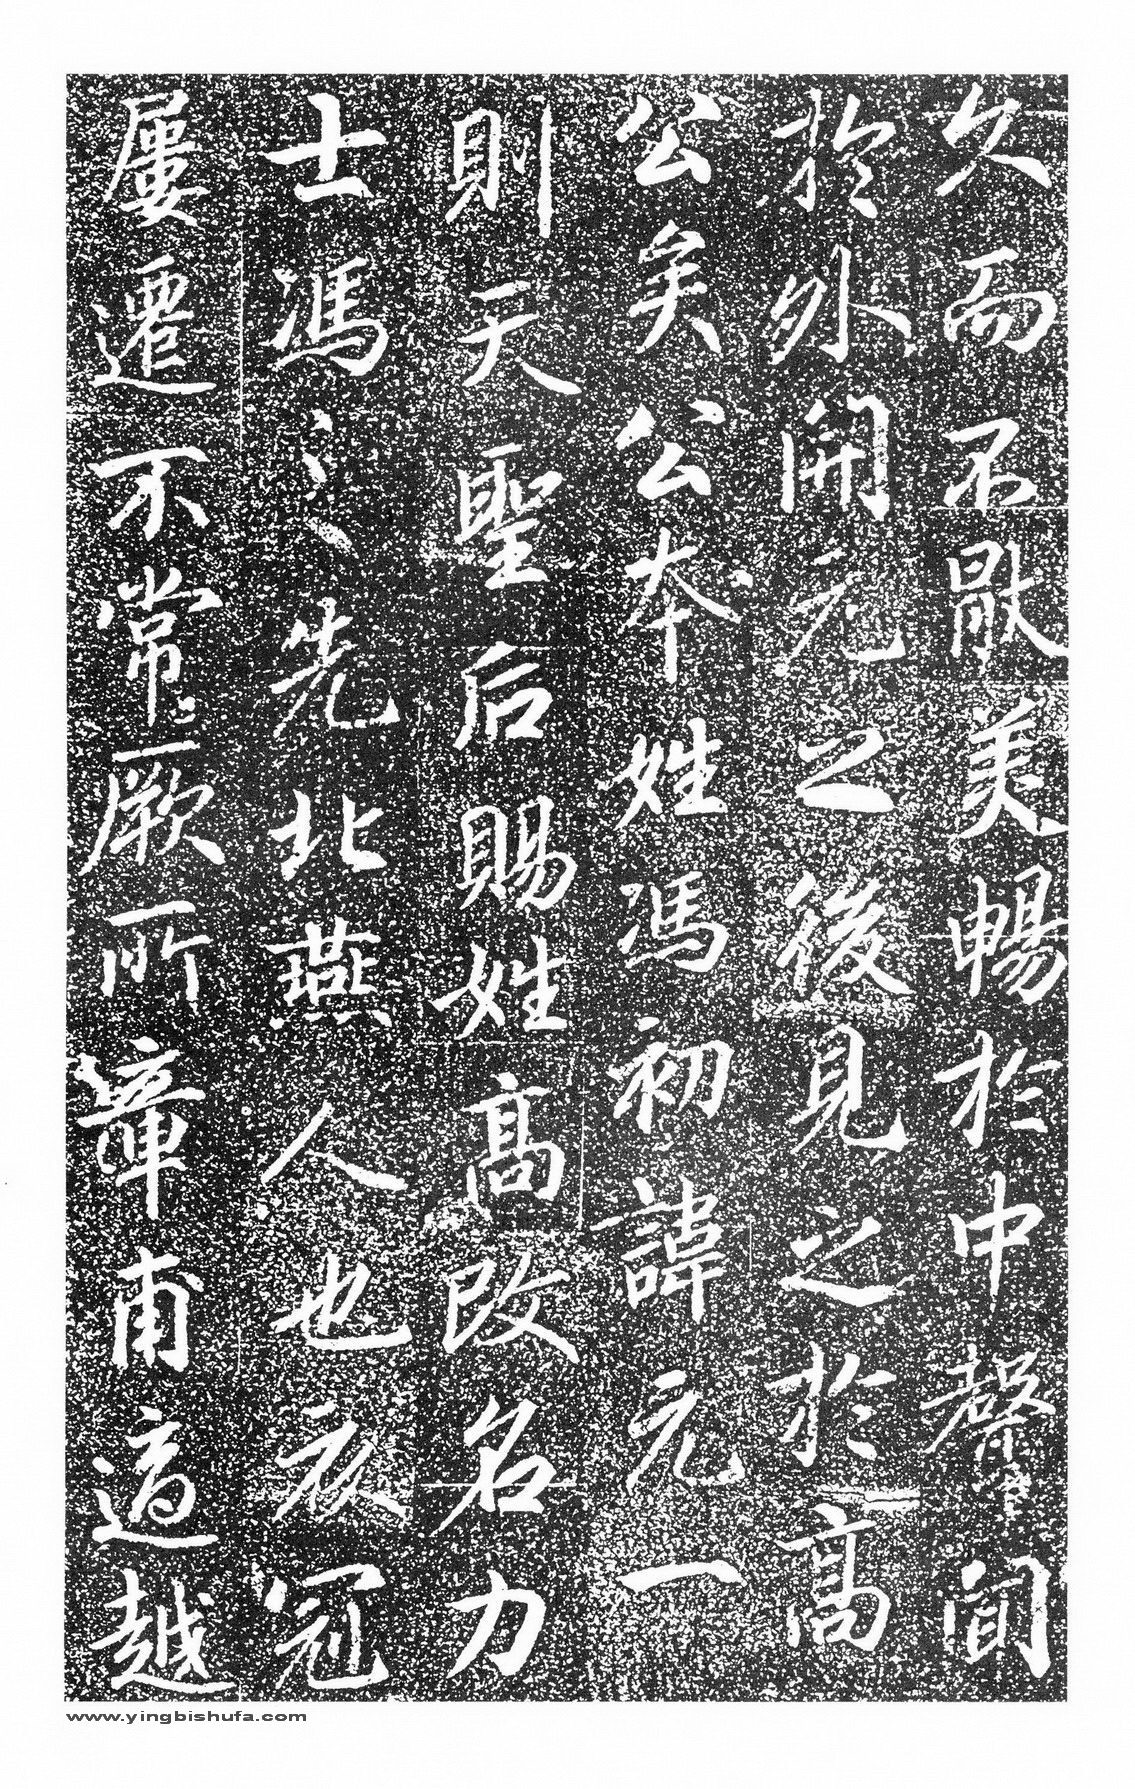 久而不敢美暢於中聲聞
於外開元之後見之於高
公矣公本姓馮初諱元一
則天聖后賜姓高改名力
士馮之先北燕人也衣冠
屢遷不常厥所章甫適越
www.yingbishufa.com